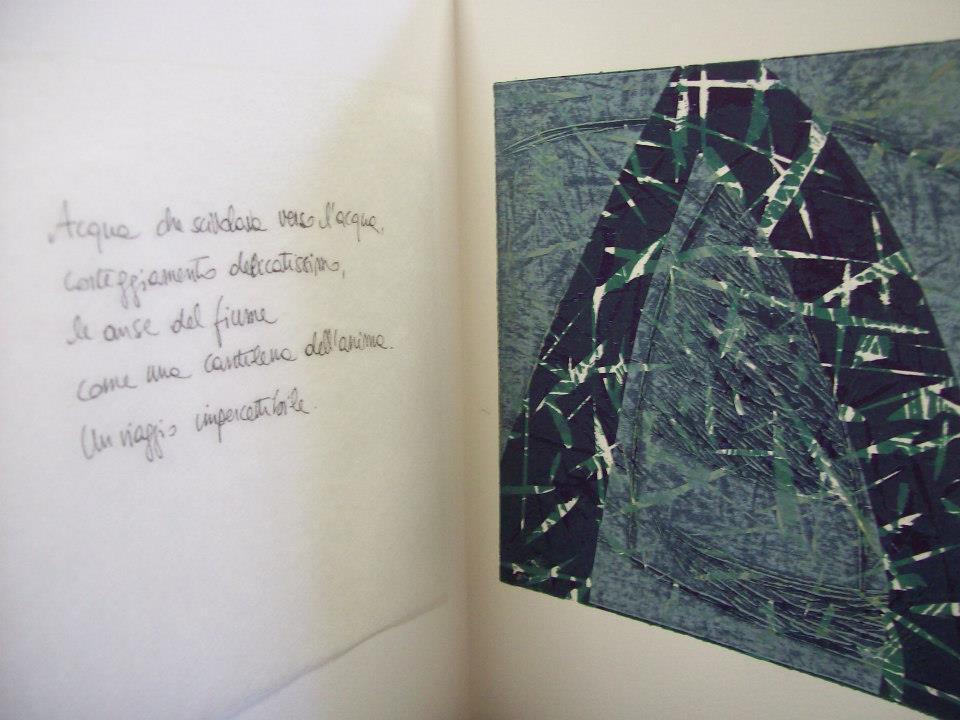 Acqua che scivolava verso l'acqua,
corteggiamento delicatissimo,
le anse del fiume
come una cantilena dell'anima.
Un viaggio impercettibile.